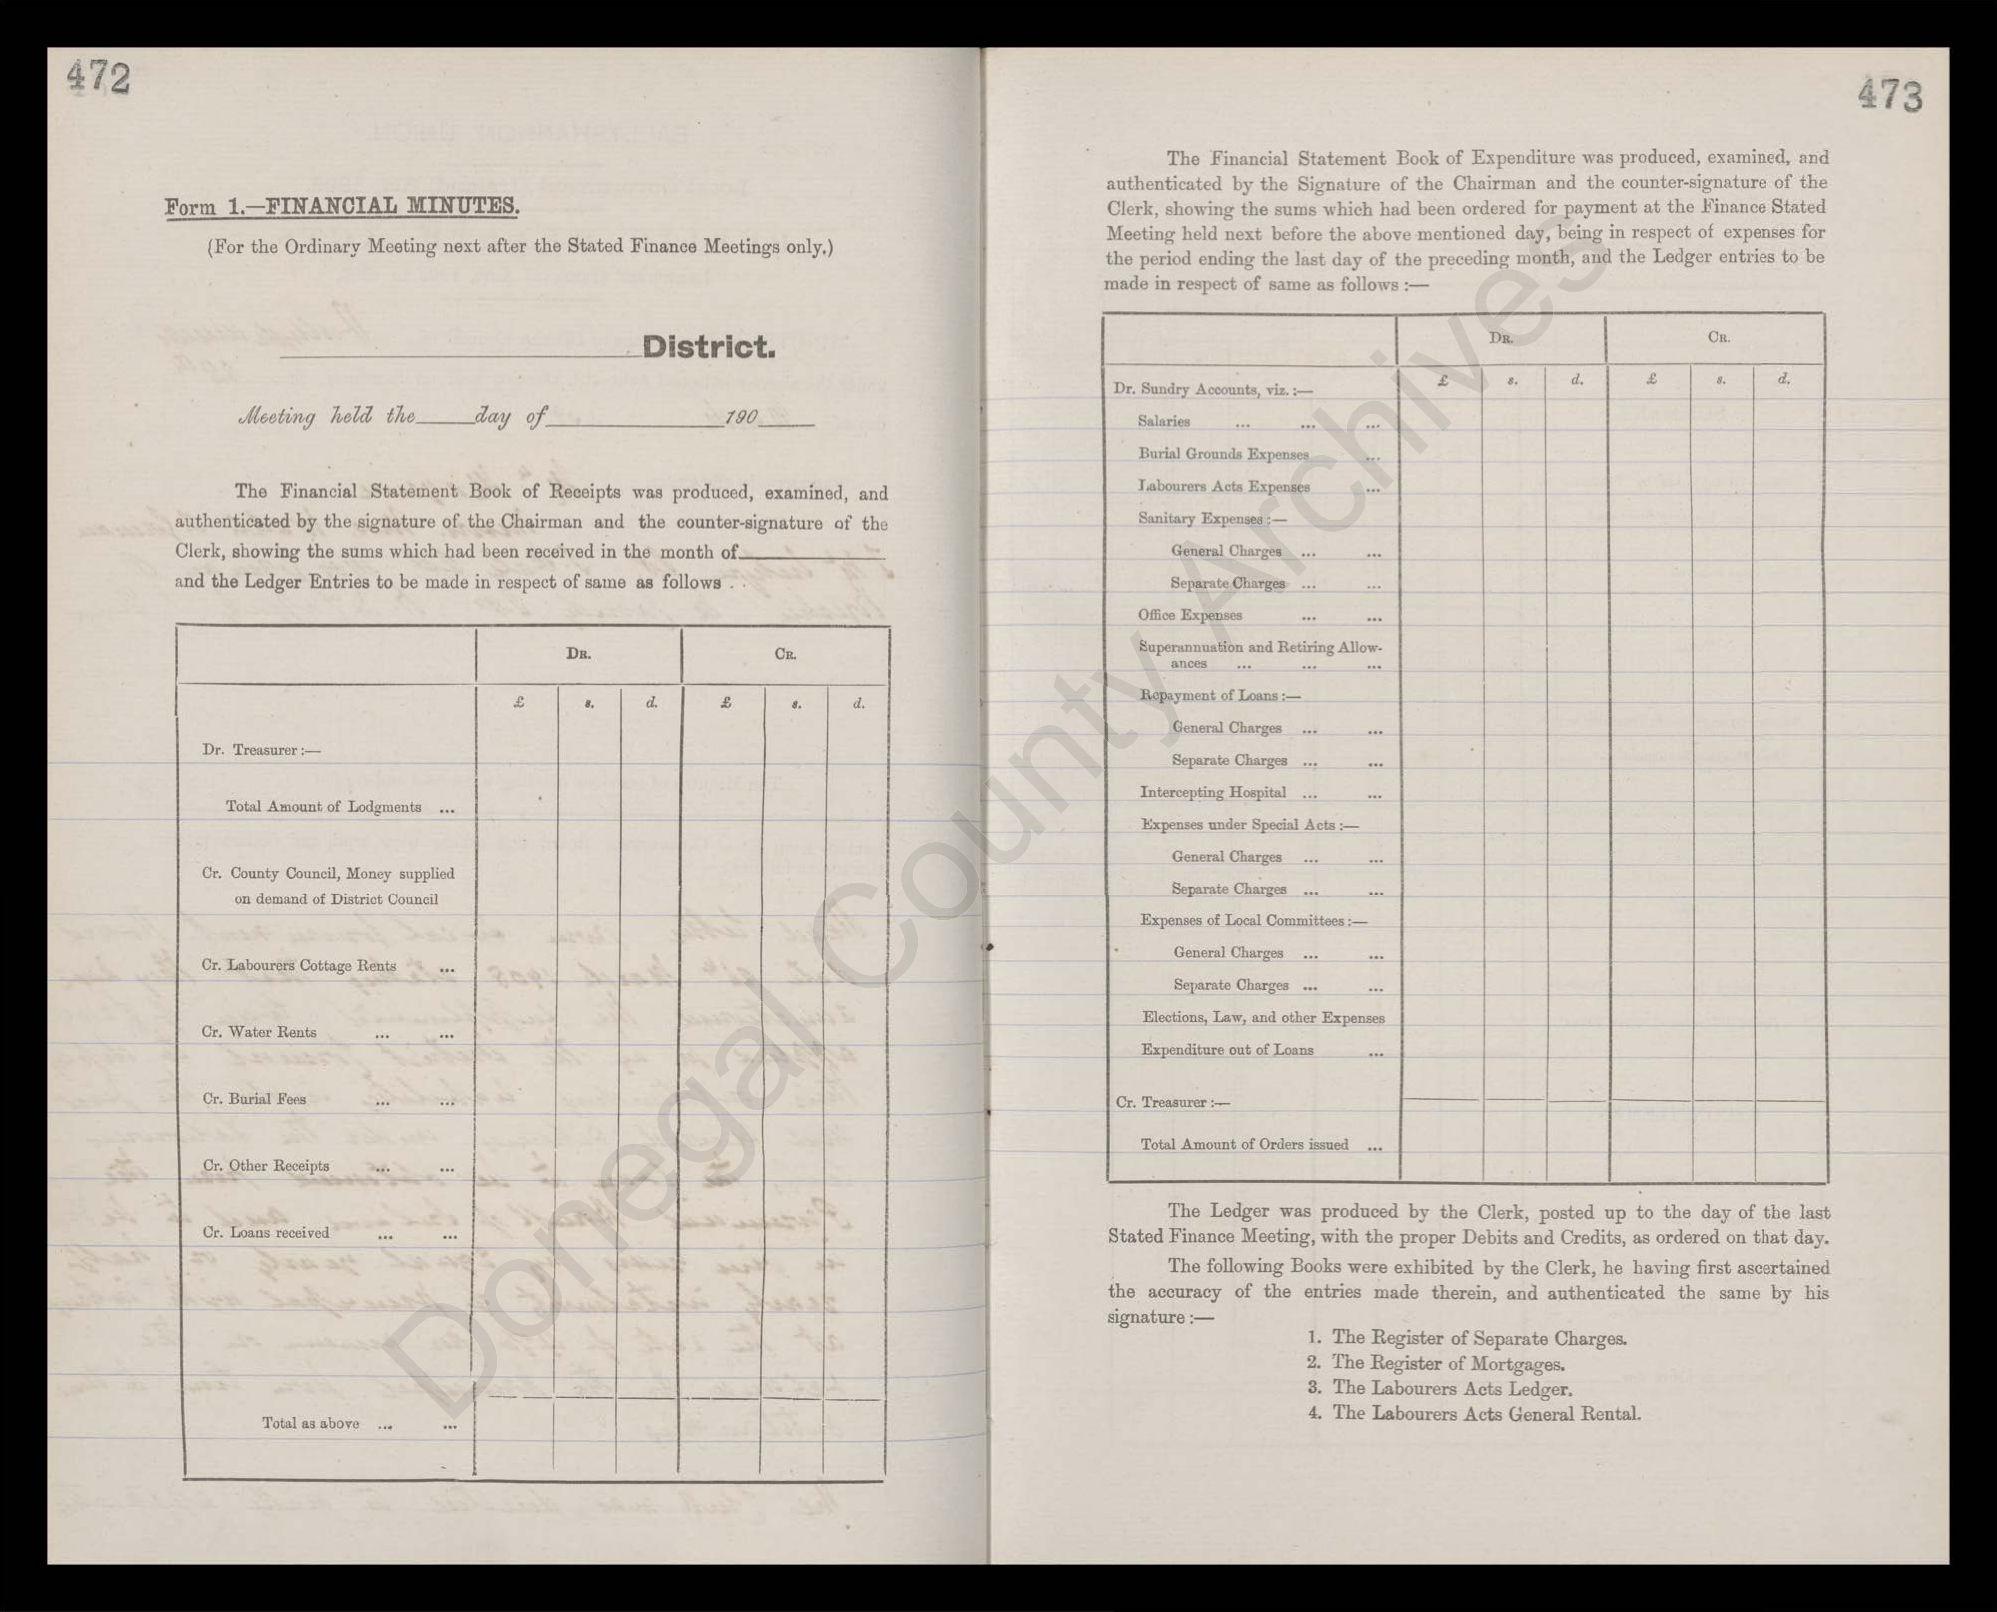 472
Form 1.—FINANCIAL MINUTES.
(For the Ordinary Meeting next after the Stated Finance Meetings only.)
District.
Meeting held the day of 190
The Financial Statement Book of Receipts was produced, examined, and
authenticated by the signature of the Chairman and the counter-signature of the
Clerk, showing the sums which had been received in the month of
and the Ledger Entries to be made in respect of same as follows . .
DR. CR.
£ s. d. £ s. d.
Dr. Treasurer :—
Total Amount of Lodgments ...
Cr. County Council, Money supplied
on demand of District Council
Cr. Labourers Cottage Rents ...
Cr. Water Rents ... ...
Cr. Burial Fees ... ...
Cr. Other Receipts ... ...
Cr. Loans received ... ...
Total as above ... ...
473
The Financial Statement Book of Expenditure was produced, examined, and
authenticated by the Signature of the Chairman and the counter-signature of the
Clerk, showing the sums which had been ordered for payment at the Finance Stated
Meeting held next before the above mentioned day, being in respect of expenses for
the period ending the last day of the preceding month, and the Ledger entries to be
made in respect of same as follows :—
DR. CR.
£ s. d. £ s. d.
Dr. Sundry Accounts, viz. :—
Salaries ... ... ...
Burial Grounds Expenses ...
Labourers Acts Expenses ...
Sanitary Expenses :—
General Charges ... ...
Separate Charges ... ...
Office Expenses ... ...
Superannuation and Retiring Allow-
ances ... ... ...
Repayment of Loans :—
General Charges ... ...
Separate Charges ... ...
Intercepting Hospital ... ...
Expenses under Special Acts :—
General Charges ... ...
Separate Charges ... ...
Expenses of Local Committees :—
General Charges ... ...
Separate Charges ... ...
Elections, Law, and other Expenses
Expenditure out of Loans ...
Cr. Treasurer :—
Total Amount of Orders issued ...
The Ledger was produced by the Clerk, posted up to the day of the last
Stated Finance Meeting, with the proper Debits and Credits, as ordered on that day.
The following Books were exhibited by the Clerk, he having first ascertained
the accuracy of the entries made therein, and authenticated the same by his
signature :—
1. The Register of Separate Charges.
2. The Register of Mortgages.
3. The Labourers Acts Ledger.
4. The Labourers Acts General Rental.
Donegal County Archives